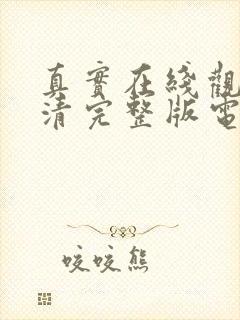 真實在綫觀
清完整版電
咬咬熊